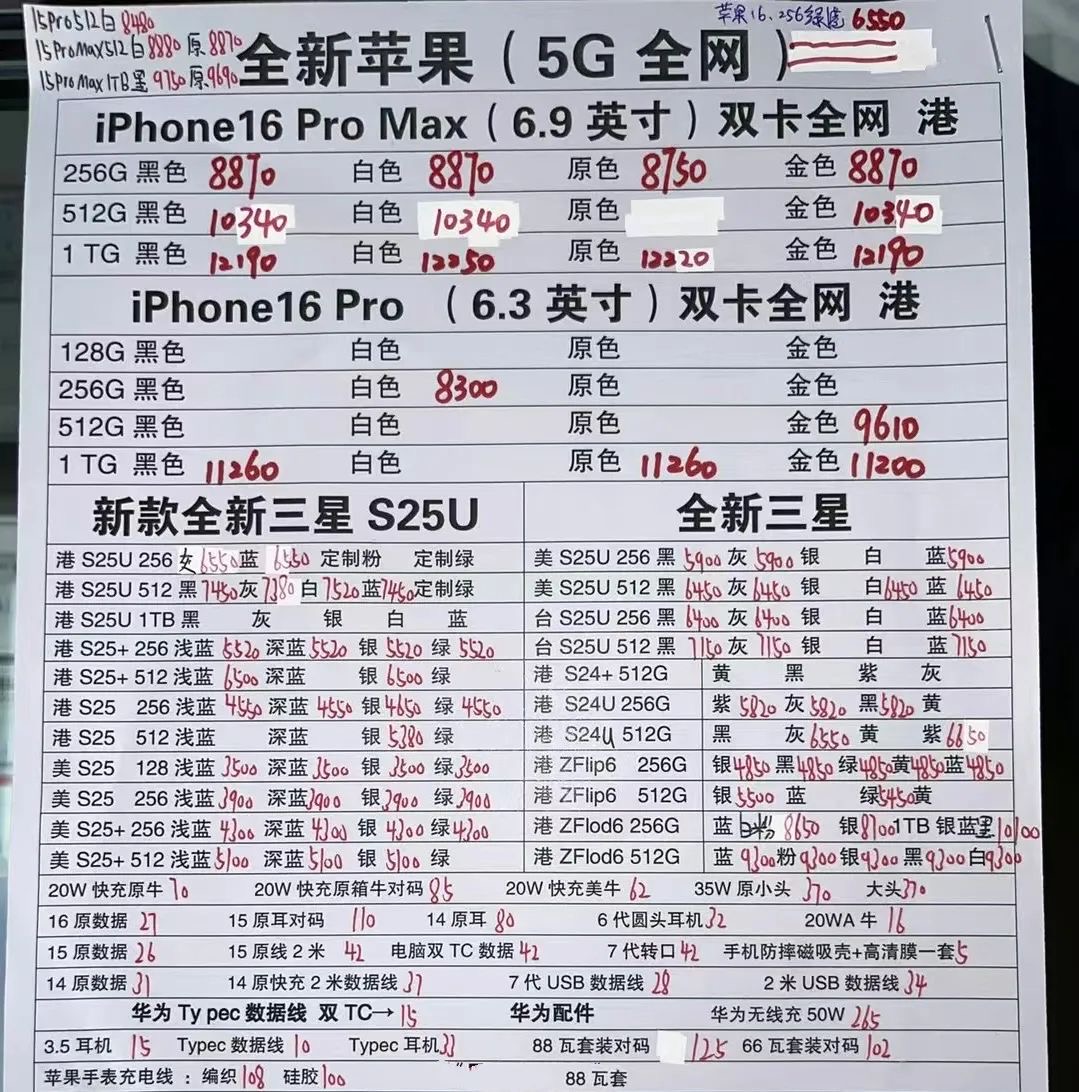 15Pro512白8480
15ProMax512白8880 原8870
15ProMax1TB黑9750原9690
苹果16、256绿 6550
全新苹果（5G 全网）
iPhone16 Pro Max（6.9 英寸）双卡全网 港
256G 黑色 8870 白色 8870 原色 8750 金色 8870
512G 黑色 10340 白色 10340 原色 金色 10340
1 TG 黑色 12190 白色 12250 原色 12220 金色 12190
iPhone16 Pro （6.3 英寸）双卡全网 港
128G 黑色 白色 原色 金色
256G 黑色 白色 8300 原色 金色
512G 黑色 白色 原色 金色 9610
1 TG 黑色 11260 白色 原色 11260 金色 11200
新款全新三星 S25U
港 S25U 256 灰 6550 蓝 6550 定制粉 定制绿
港 S25U 512 黑 7450 灰 7380 白 7520 蓝 7450 定制绿
港 S25U 1TB 黑 灰 银 白 蓝
港 S25+ 256 浅蓝 5520 深蓝 5520 银 5520 绿 5520
港 S25+ 512 浅蓝 6500 深蓝 银 6500 绿
港 S25 256 浅蓝 4550 深蓝 4550 银 4650 绿 4550
港 S25 512 浅蓝 深蓝 银 5380 绿
美 S25 128 浅蓝 3500 深蓝 3500 银 3500 绿 3500
美 S25 256 浅蓝 3900 深蓝 3900 银 3900 绿 3900
美 S25+ 256 浅蓝 4300 深蓝 4300 银 4300 绿 4300
美 S25+ 512 浅蓝 5100 深蓝 5100 银 5100 绿
全新三星
美 S25U 256 黑 5900 灰 5900 银 白 蓝 5900
美 S25U 512 黑 6450 灰 6450 银 白 6450 蓝 6450
台 S25U 256 黑 6400 灰 6400 银 白 蓝 6400
台 S25U 512 黑 7150 灰 7150 银 白 蓝 7150
港 S24+ 512G 黄 黑 紫 灰
港 S24U 256G 紫 5820 灰 5820 黑 5820 黄
港 S24U 512G 黑 灰 6550 黄 紫 6650
港 ZFlip6 256G 银 4850 黑 4850 绿 4850 黄 4850 蓝 4850
港 ZFlip6 512G 银 5500 蓝 绿 5450 黄
港 ZFlod6 256G 蓝 粉 8650 银 8700 1TB 银蓝黑 10100
港 ZFlod6 512G 蓝 9300 粉 9300 银 9300 黑 9300 白 9300
20W 快充原牛 70 20W 快充原箱牛对码 85 20W 快充美牛 62 35W 原小头 370 大头 370
16 原数据 27 15 原耳对码 110 14 原耳 80 6 代圆头耳机 32 20WA 牛 16
15 原数据 26 15 原线 2 米 42 电脑双 TC 数据 42 7 代转口 42 手机防摔磁吸壳+高清膜一套 5
14 原数据 31 14 原快充 2 米数据线 37 7 代 USB 数据线 28 2 米 USB 数据线 34
华为 Ty pec 数据线 双 TC→ 15 华为配件 华为无线充 50W 265
3.5 耳机 15 Typec 数据线 10 Typec 耳机 33 88 瓦套装对码 125 66 瓦套装对码 102
苹果手表充电线 ：编织 108 硅胶 100 88 瓦套